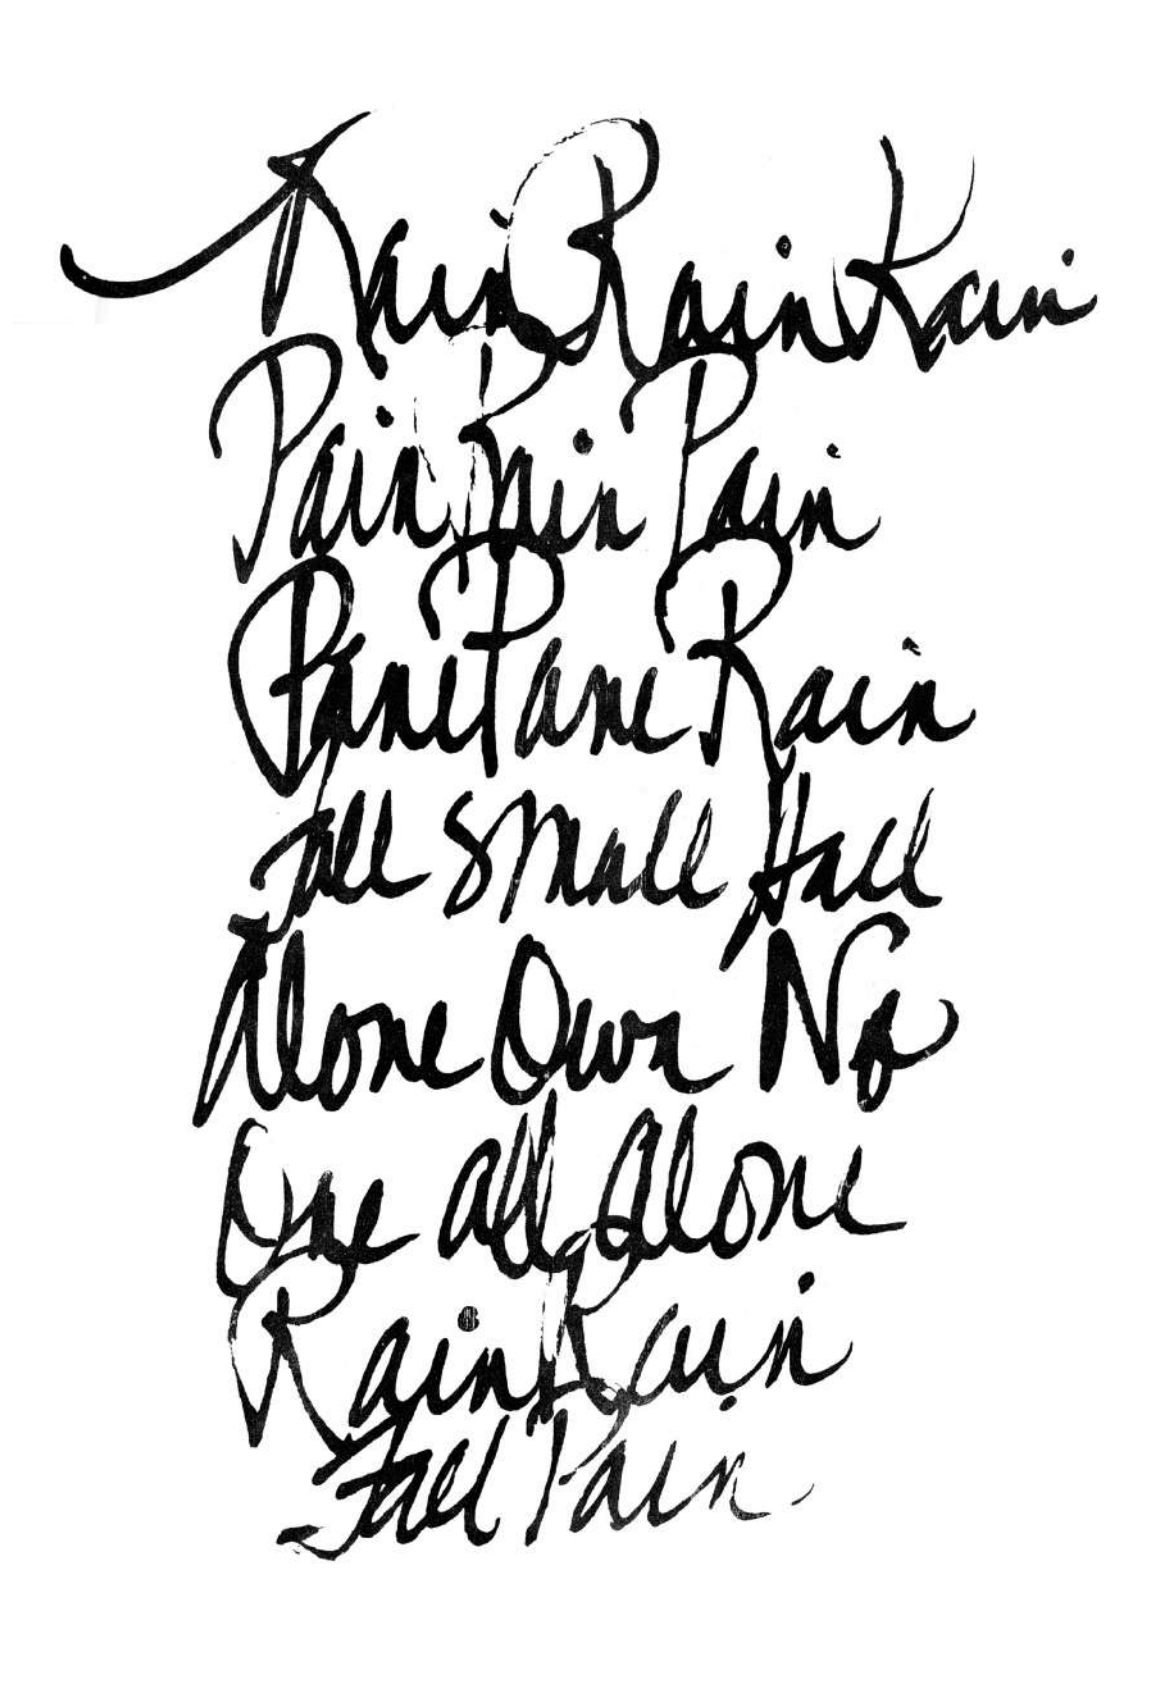 Rain Rain Rain
Pain Rain Pain
Pane Pane Rain
Fall Small Hall
Alone Own No
One all Alone
Rain Rain
Fall Pain